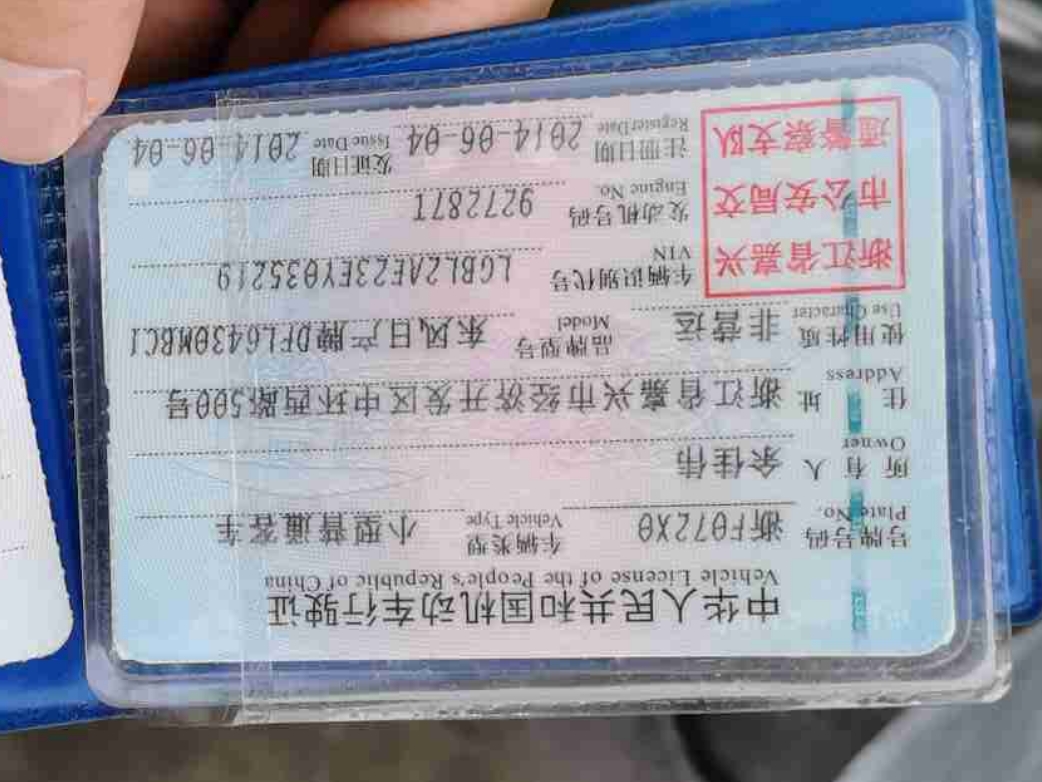 中华人民共和国机动车行驶证
Vehicle License of the People's Republic of China
号牌号码 浙F072X0 车辆类型 小型普通客车
Plate No. Vehicle Type
所有人 余佳伟
Owner
住址 浙江省嘉兴市经济开发区中环西路500号
Address
使用性质 非营运 品牌型号 东风日产牌DFL6430MBC1
Use Character Model
浙江省嘉兴
市公安局交
通警察支队
车辆识别代号 LGBL2AE23EY035219
VIN
发动机号码 927287T
Engine No.
注册日期 2014-06-04 发证日期 2014-06-04
Register Date Issue Date